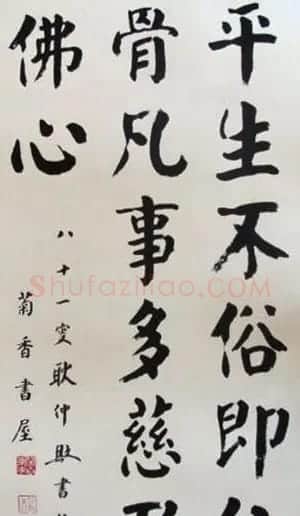 平生不俗即
骨凡事多慈
佛心
八十一叟耿仲書
菊香書屋
Shufaziliao.COM